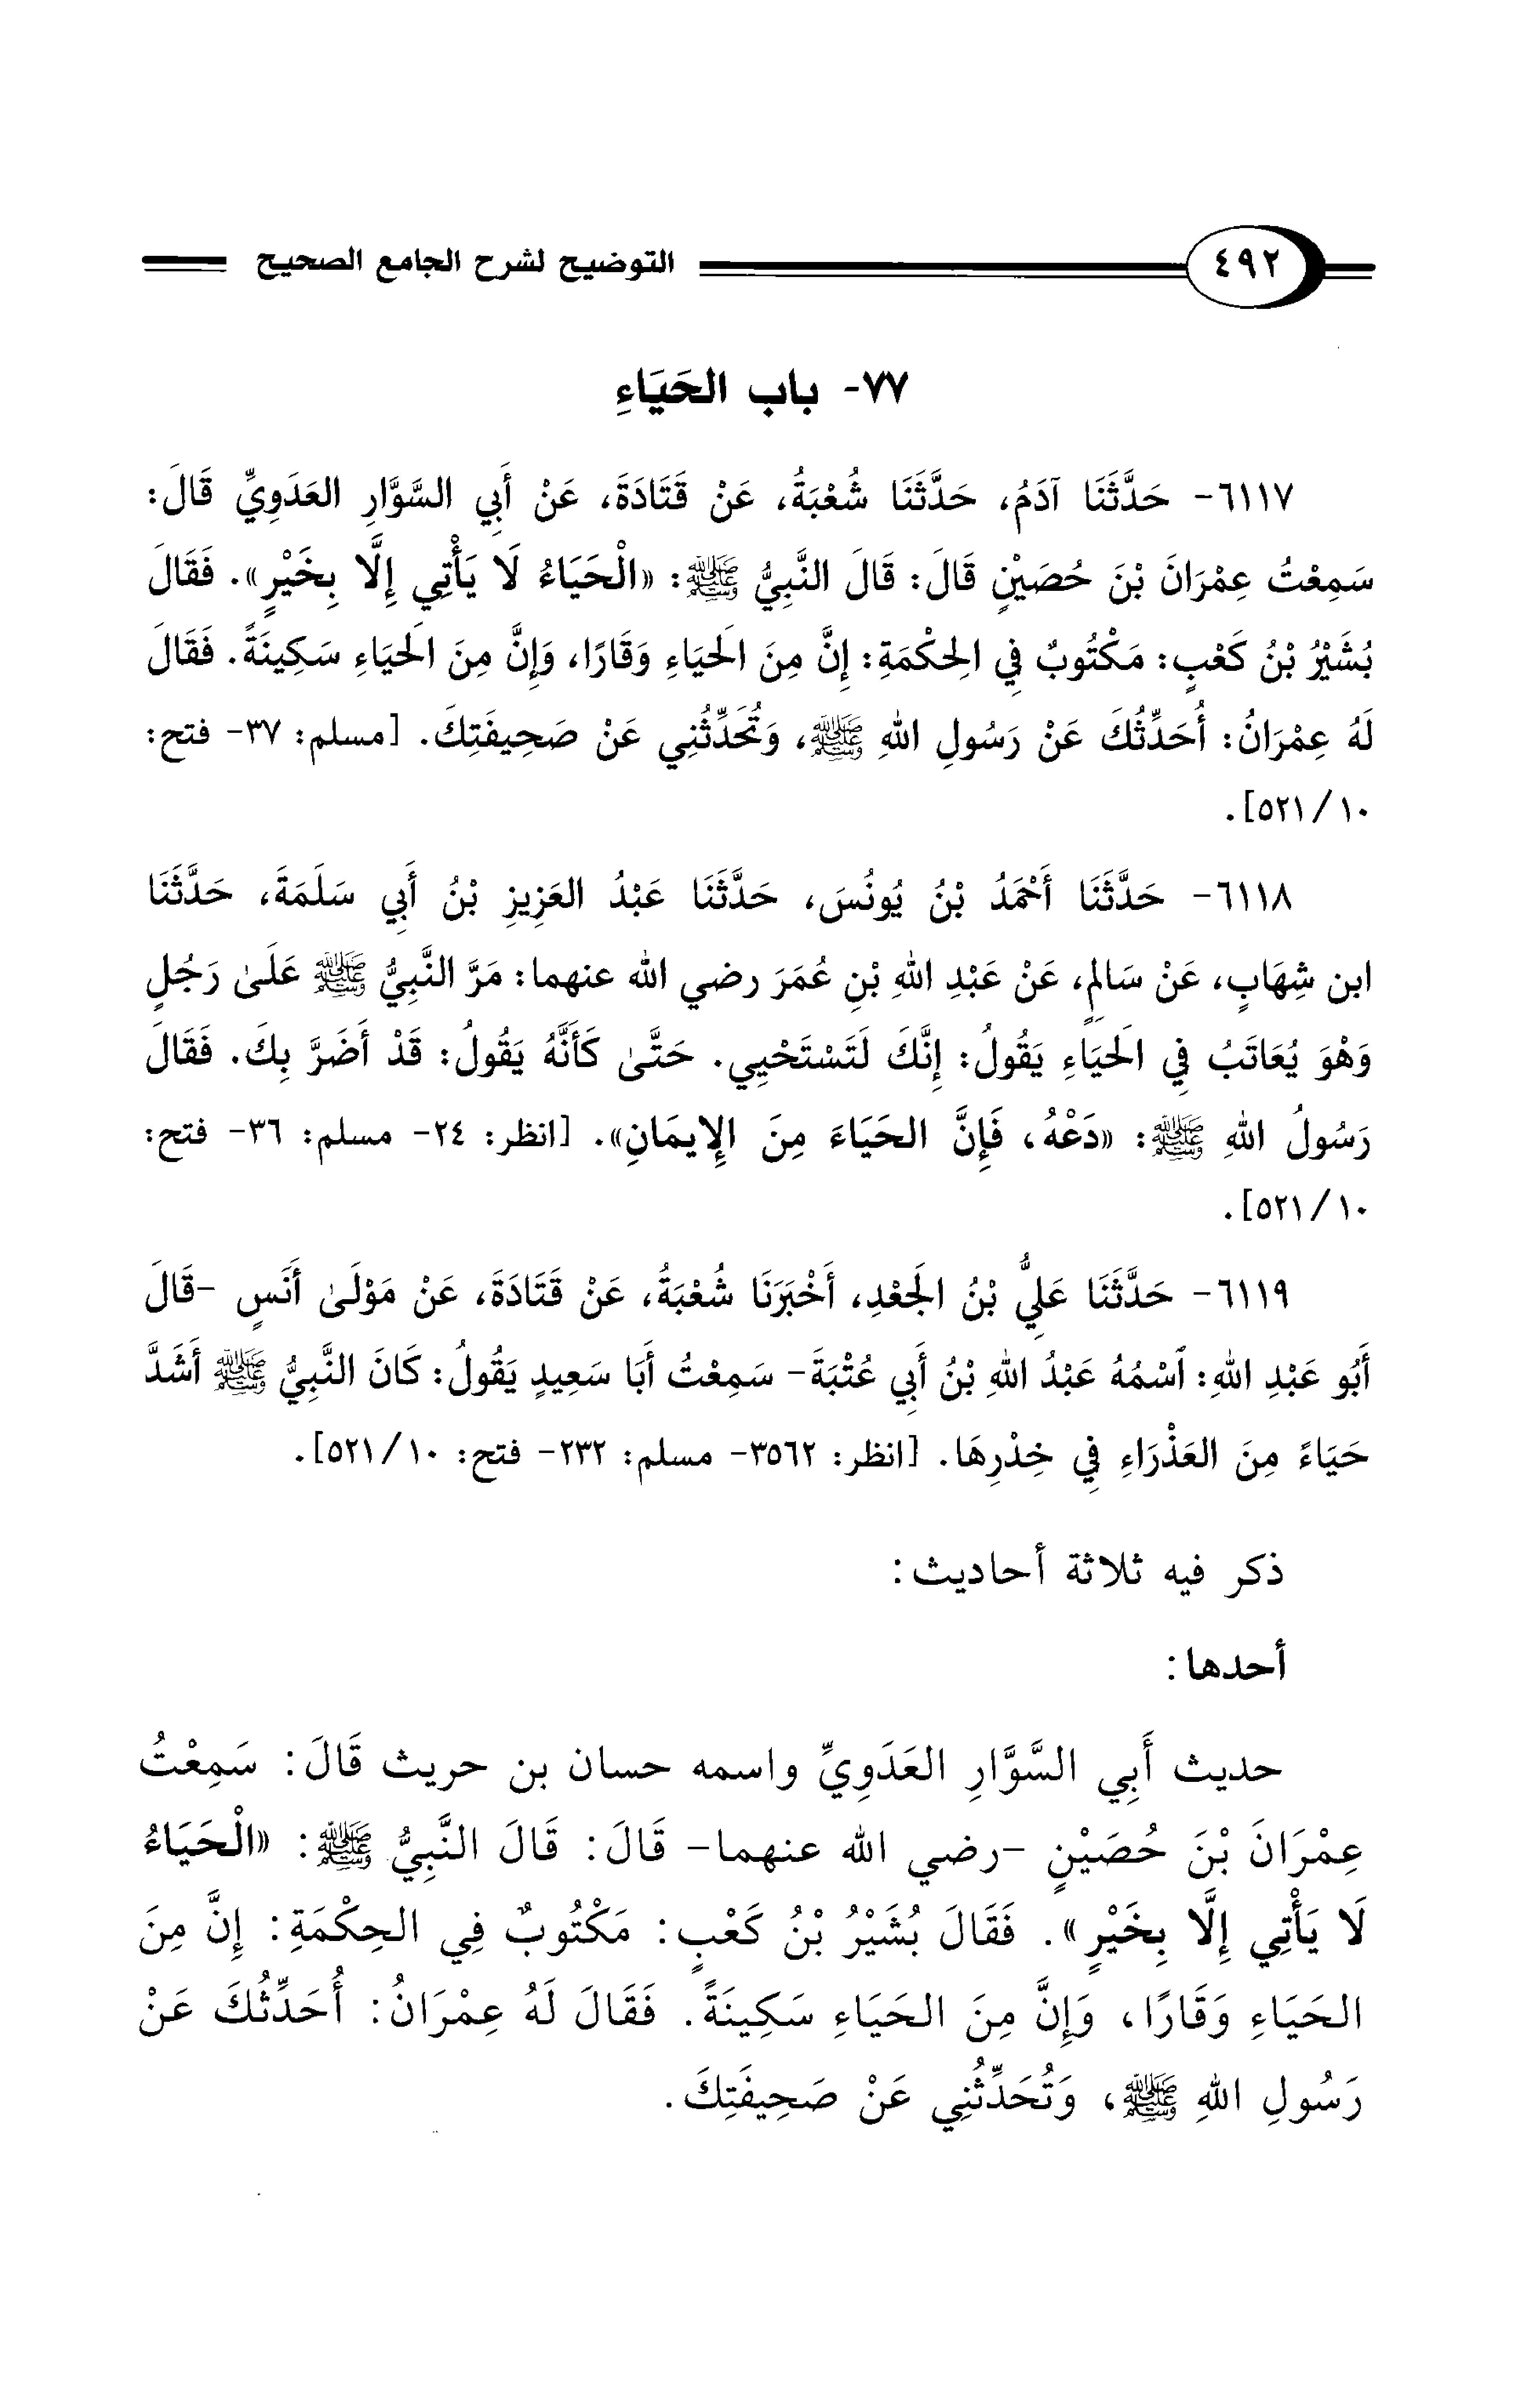 ٤٩٢ التوضيح لشرح الجامع الصحيح
٧٧- باب الحَيَاءِ
٦١١٧- حَدَّثَنَا آدَمُ، حَدَّثَنَا شُعْبَةُ، عَنْ قَتَادَةَ، عَنْ أَبِي السَّوَّارِ العَدَوِيِّ قَالَ:
سَمِعْتُ عِمْرَانَ بْنَ حُصَيْنٍ قَالَ: قَالَ النَّبِيُّ ﷺ: «الْحَيَاءُ لَا يَأْتِي إِلَّا بِخَيْرٍ». فَقَالَ
بُشَيْرُ بْنُ كَعْبٍ: مَكْتُوبٌ فِي الحِكْمَةِ: إِنَّ مِنَ الحَيَاءِ وَقَارًا، وَإِنَّ مِنَ الحَيَاءِ سَكِينَةً. فَقَالَ
لَهُ عِمْرَانُ: أُحَدِّثُكَ عَنْ رَسُولِ اللهِ ﷺ، وَتُحَدِّثُنِي عَنْ صَحِيفَتِكَ. [مسلم: ٣٧- فتح:
١٠/٥٢١].
٦١١٨- حَدَّثَنَا أَحْمَدُ بْنُ يُونُسَ، حَدَّثَنَا عَبْدُ العَزِيزِ بْنُ أَبِي سَلَمَةَ، حَدَّثَنَا
ابن شِهَابٍ، عَنْ سَالِمٍ، عَنْ عَبْدِ اللهِ بْنِ عُمَرَ رضي الله عنهما: مَرَّ النَّبِيُّ ﷺ عَلَىٰ رَجُلٍ
وَهْوَ يُعَاتَبُ فِي الحَيَاءِ يَقُولُ: إِنَّكَ لَتَسْتَحْيِي. حَتَّىٰ كَأَنَّهُ يَقُولُ: قَدْ أَضَرَّ بِكَ. فَقَالَ
رَسُولُ اللهِ ﷺ: «دَعْهُ، فَإِنَّ الحَيَاءَ مِنَ الإِيمَانِ». [انظر: ٢٤- مسلم: ٣٦- فتح:
١٠/٥٢١].
٦١١٩- حَدَّثَنَا عَلِيُّ بْنُ الجَعْدِ، أَخْبَرَنَا شُعْبَةُ، عَنْ قَتَادَةَ، عَنْ مَوْلَىٰ أَنَسٍ -قَالَ
أَبُو عَبْدِ اللهِ: ٱسْمُهُ عَبْدُ اللهِ بْنُ أَبِي عُتْبَةَ- سَمِعْتُ أَبَا سَعِيدٍ يَقُولُ: كَانَ النَّبِيُّ ﷺ أَشَدَّ
حَيَاءً مِنَ العَذْرَاءِ فِي خِدْرِهَا. [انظر: ٣٥٦٢- مسلم: ٢٣٢- فتح: ١٠/٥٢١].
ذكر فيه ثلاثة أحاديث:
أحدها:
حديث أَبِي السَّوَّارِ العَدَوِيِّ واسمه حسان بن حريث قَالَ: سَمِعْتُ
عِمْرَانَ بْنَ حُصَيْنٍ -رضي الله عنهما- قَالَ: قَالَ النَّبِيُّ ﷺ: «الْحَيَاءُ
لَا يَأْتِي إِلَّا بِخَيْرٍ». فَقَالَ بُشَيْرُ بْنُ كَعْبٍ: مَكْتُوبٌ فِي الحِكْمَةِ: إِنَّ مِنَ
الحَيَاءِ وَقَارًا، وَإِنَّ مِنَ الحَيَاءِ سَكِينَةً. فَقَالَ لَهُ عِمْرَانُ: أُحَدِّثُكَ عَنْ
رَسُولِ اللهِ ﷺ، وَتُحَدِّثُنِي عَنْ صَحِيفَتِكَ.